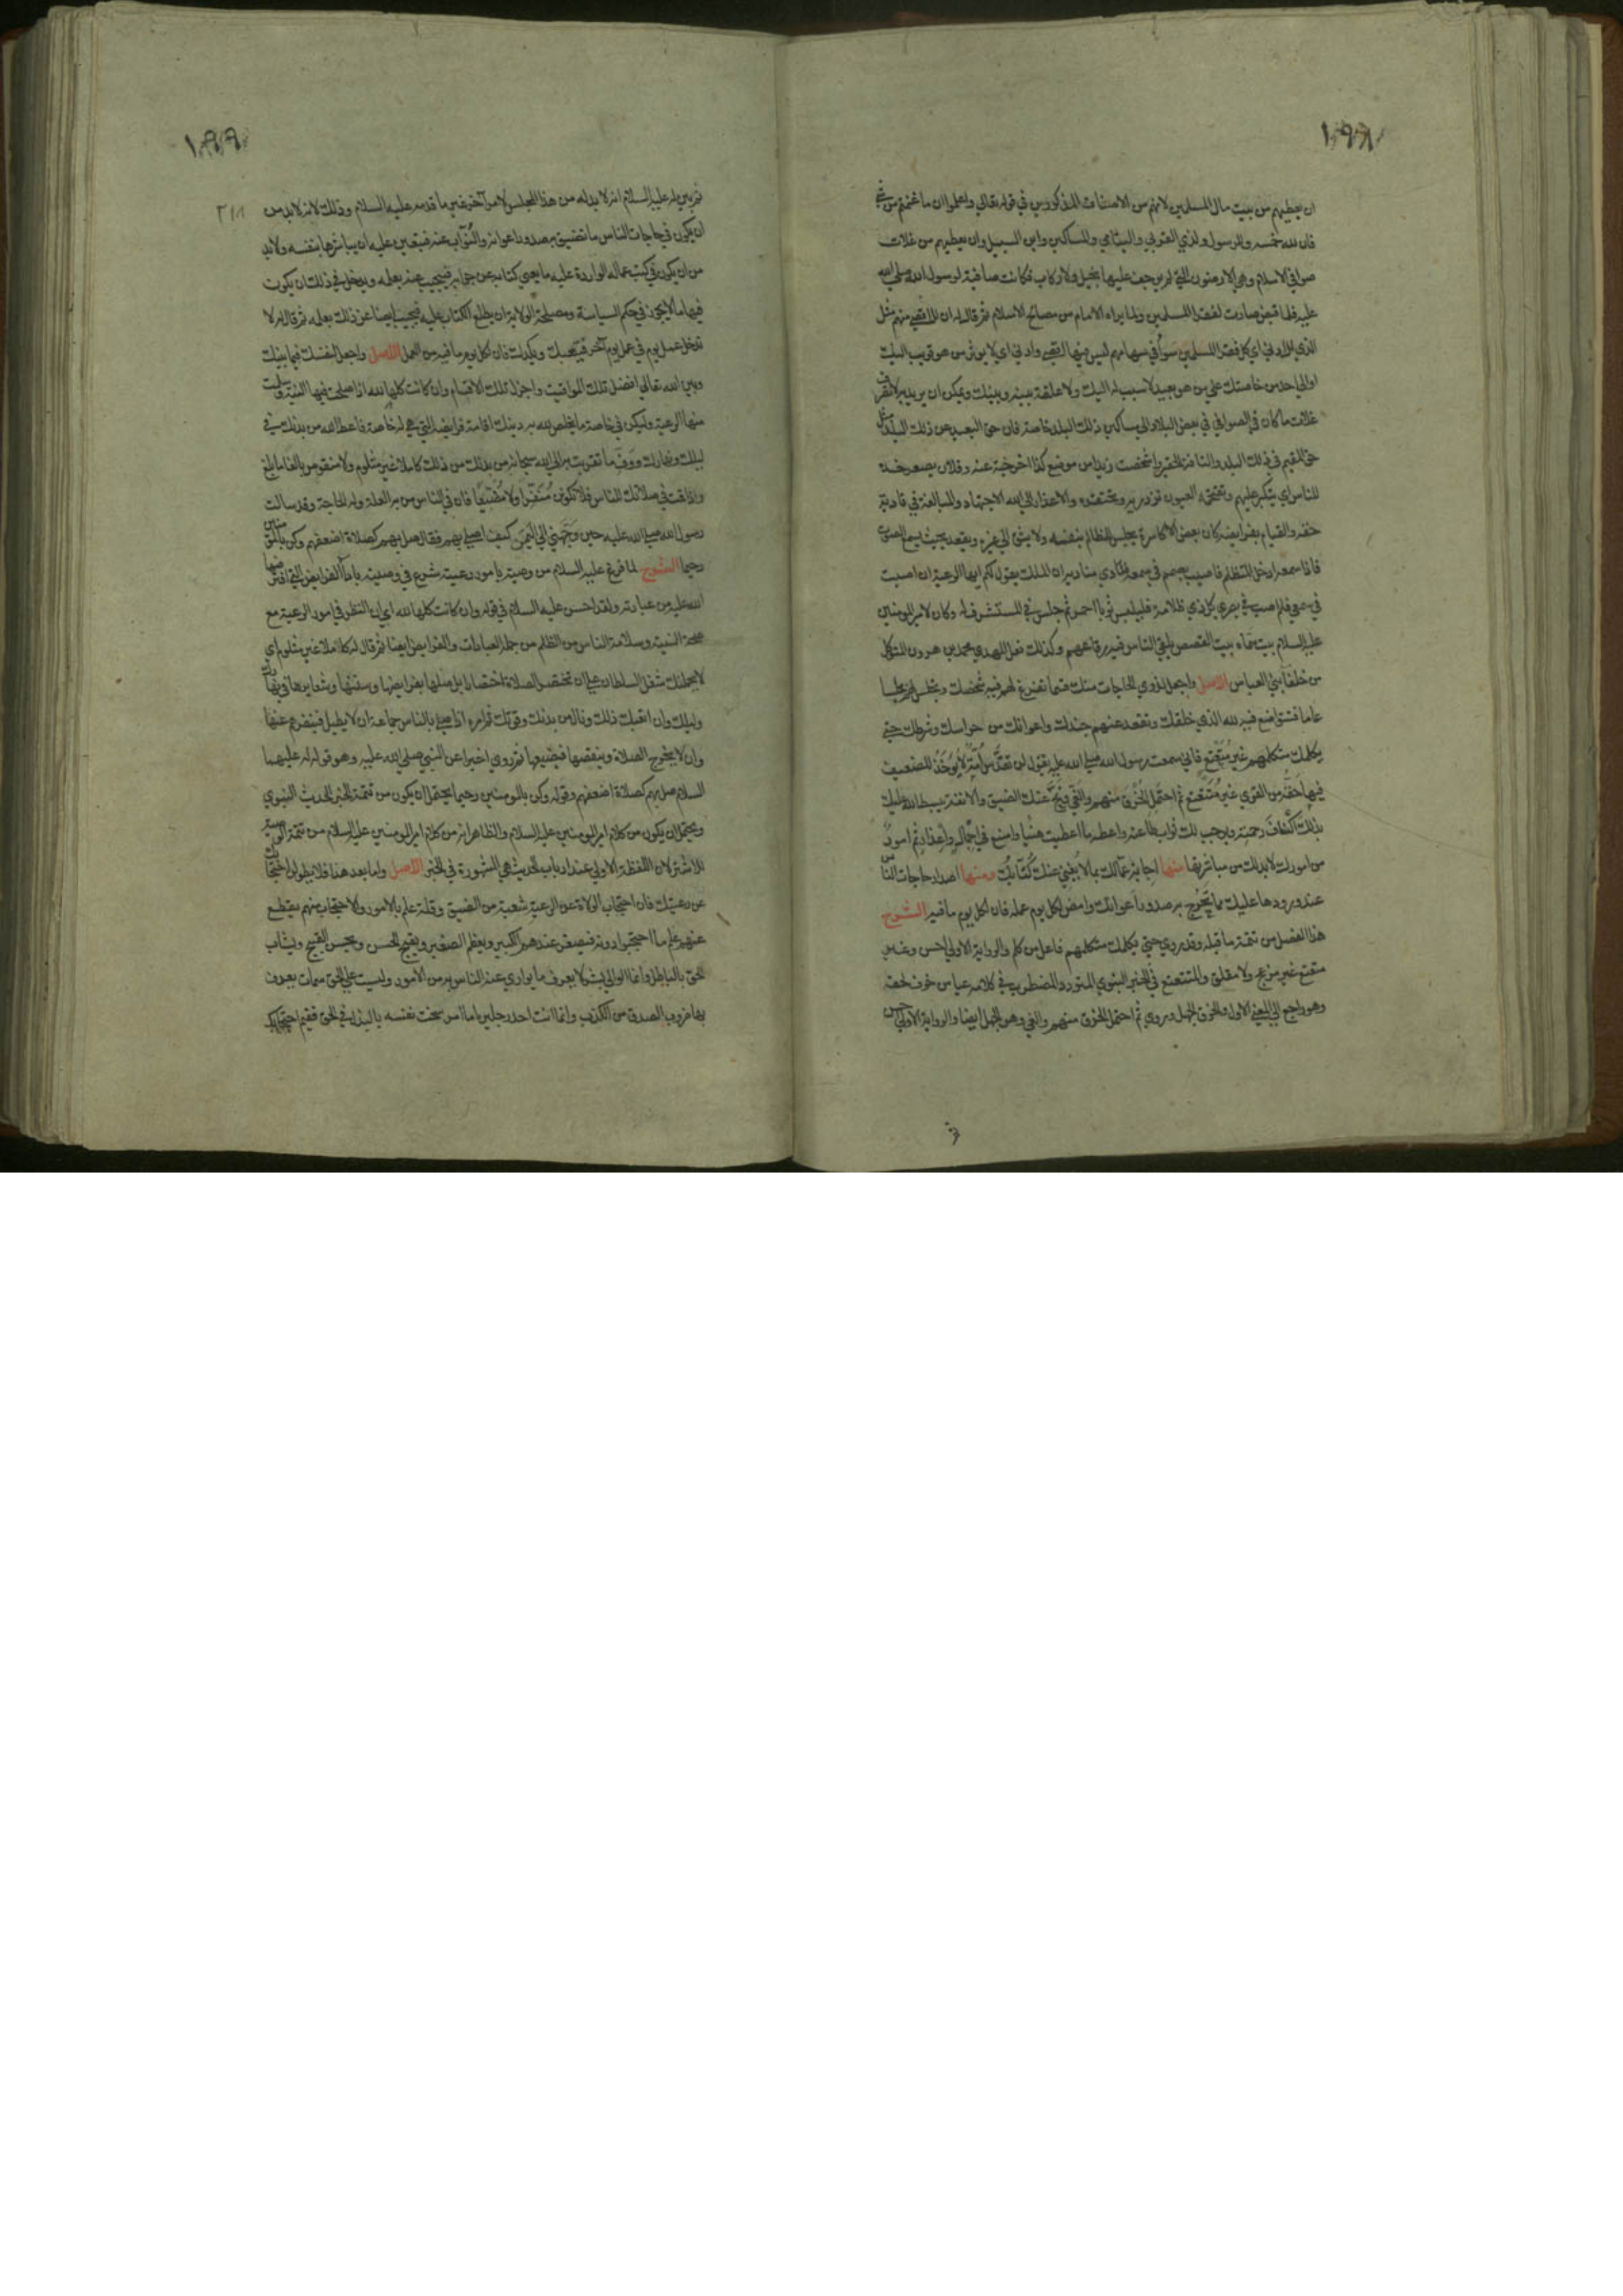 ١٩٨
ان يعطيهم من بيت مال المسلمين لانهم من الاصناف المذكورين في قوله تعالى واعلموا ان ما غنمتم من شيء
فان لله خمسه وللرسول ولذي القربي واليتامي والمساكين وابن السبيل وان يعطيهم من غلات
صوافي الاسلام وهي الارضون التي لم يوجف عليها بخيل ولا ركاب فكانت صافية لرسول الله صلى الله
عليه فلما قبض صارت لفقرا المسلمين ولما يراه الامام من مصالح الاسلام ثم قال له ان للاقصى منهم مثل
الذي للادني اي كل فقرا المسلمين سوآ في سهامهم ليس فيها اقصى وادني اي لا يوثر من هو قريب اليك
اوالي احد من خاصتك علي من هو بعيد لا سبب له اليك ولا علقة بينه وبينك ويمكن ان يريد به لا تصرف
غلات ما كان في الصوافي في بعض البلاد الي مساكين ذلك البلد خاصة فان حق البعيد عن ذلك البلد مثل
حق المقيم في ذلك البلد والتافه الحقير واشخصت زيدا من موضع كذا اخرجته عنه وفلان يصعر خده
للناس اي يتكبر عليهم وتقتحمه العيون تزدريه وتحتقره والاعذار الي الله الاجتهاد والمبالغة في تادية
حقه والقيام بفرايضه كان بعض الاكاسرة يجلس للمظالم بنفسه ولا يثق الي غيره ويقعد بحيث يسمع الصوت
فاذا سمعه ادخل المتظلم فاصيب بصمم في سمعه فنادي مناديه ان الملك يقول لكم ايها الرعية ان اصبت
في سمعي فلم اصب في بصري كل ذي ظلامة فليلبس ثوبا احمر ثم جلس في المستشرف له وكان لامير المومنين
عليه السلام بيت سماه بيت القصص يلقي الناس فيه رقاعهم وكذلك فعل المهدي محمد بن هرون المتوكل
من خلفآ بني العباس الاصل واجعل لذوي الحاجات منك قسما تفرغ لهم فيه شخصك وتجلس لهم مجلسا
عاما فتتواضع فيه لله الذي خلقك وتقعد عنهم جندك واعوانك من حراسك وشرطك حتي
يكلمك متكلمهم غير متتعتع فاني سمعت رسول الله صلى الله عليه يقول لن تقدس امة لا يوخذ للضعيف
فيها حقه من القوي غير متتعتع ثم احتمل الخرق منهم والعي ونح عنك الضيق والانف يبسط الله عليك
بذلك اكناف رحمته ويوجب لك ثواب طاعته واعط ما اعطيت هنيا وامنع في اجمال واعذار ثم امور
من امورك لابد لك من مباشرتها منها اجابة عمالك بما لا يغني عنك كتابك ومنها اصدار حاجات الناس
عند ورودها عليك بما تحرج به صدور اعوانك وامض لكل يوم عمله فان لكل يوم ما فيه الشرح
هذا الفصل من تتمة ما قبله وقد روي حتي يكلمك متكلمهم فاعل من كلم والرواية الاولي احسن وغير
متتعتع غير مزعج ولا مقلق والمتتعتع في الخبر النبوي المتردد المضطرب في كلامه عيا من خوف لحقه
وهو راجع الي المعني الاول والخرق الجهل وروي ثم احتمل الخرق منهم والغي وهو الجهل ايضا والرواية الاولي احسن
ثم
١٩٩
٢١٨
ثم بين له عليه السلام انه لا بد له من هذا المجلس لامر آخر غير ما قدمه عليه السلام وذلك لانه لا بد من
ان يكون في حاجات الناس ما تضيق به صدور اعوانه والنواب عنه فيتعين عليه ان يباشرها بنفسه ولا بد
من ان يكون في كتب عماله الواردة عليه ما يعيي كتابه عن جوابه فيجيب عنه بعلمه ويدخل في ذلك ان يكون
فيها ما لا يجوز في حكم السياسة ومصلحة الولاية ان يطلع الكتاب عليه فيجيب ايضا عن ذلك بعلمه ثم قال له لا
تدخل عمل يوم في عمل يوم آخر فيتعبك ويكدرك فان لكل يوم ما فيه من العمل الاصل واجعل لنفسك فيما بينك
وبين الله تعالي افضل تلك المواقيت واجزل تلك الاقسام وان كانت كلها لله اذا صلحت فيها النية وسلمت
منها الرعية وليكن في خاصة ما تخلص لله به دينك اقامة فرايضه التي هي له خاصة فاعط الله من بدنك في
ليلك ونهارك ووف ما تقربت به الي الله سبحانه من ذلك كاملا غير مثلوم ولا منقوص بالغا ما بلغ
واذا قمت في صلاتك للناس فلا تكونن منفرا ولا مضيعا فان في الناس من به العلة وله الحاجة وقد سالت
رسول الله صلى الله عليه حين وجهني الي اليمن كيف اصلي بهم فقال صل بهم كصلاة اضعفهم وكن بالمومنين
رحيما الشرح لما فرغ عليه السلام من وصيته بامور رعيته شرع في وصيته باداآ الفرايض التي افترضها
الله عليه من عبادته ولقد احسن عليه السلام في قوله وان كانت كلها لله اي ان النظر في امور الرعية مع
صحة النية وسلامة الناس من الظلم من جملة العبادات والفرايض ايضا ثم قال له كاملا غير مثلوم اي
لا يحملنك شغل السلطان علي ان تختصر الصلاة اختصارا بل صلها بفرايضها وسننها وشعايرها في نهارك
وليلك وان اتعبك ذلك ونال من بدنك وقوتك ثم امره اذا صلي بالناس جماعة ان لا يطيل فينفرهم عنها
وان لا يخدج الصلاة وينقصها فيضيعها ثم روي خبرا عن النبي صلى الله عليه وهو قوله له عليهما
السلام صل بهم كصلاة اضعفهم وقوله وكن بالمومنين رحيما يحتمل ان يكون من تتمة الخبر الحديث النبوي
ويحتمل ان يكون من كلام امير المومنين عليه السلام والظاهر انه من كلام امير المومنين عليه السلام من تتمة الوصية
للاشتر لان اللفظة الاولي عند ارباب الحديث هي المشهورة في الخبر الاصل واما بعد هذا فلا تطولن احتجابك
عن رعيتك فان احتجاب الولاة عن الرعية شعبة من الضيق وقلة علم بالامور والاحتجاب منهم يقطع
عنهم علم ما احتجبوا دونه فيصغر عندهم الكبير ويعظم الصغير ويقبح الحسن ويحسن القبيح ويشاب
الحق بالباطل وانما الوالي بشر لا يعرف ما يواري عنه الناس به من الامور وليست علي الحق سمات يعرف
بها ضروب الصدق من الكذب وانما انت احد رجلين اما امرء سخت نفسه بالبذل في الحق ففيم احتجابك